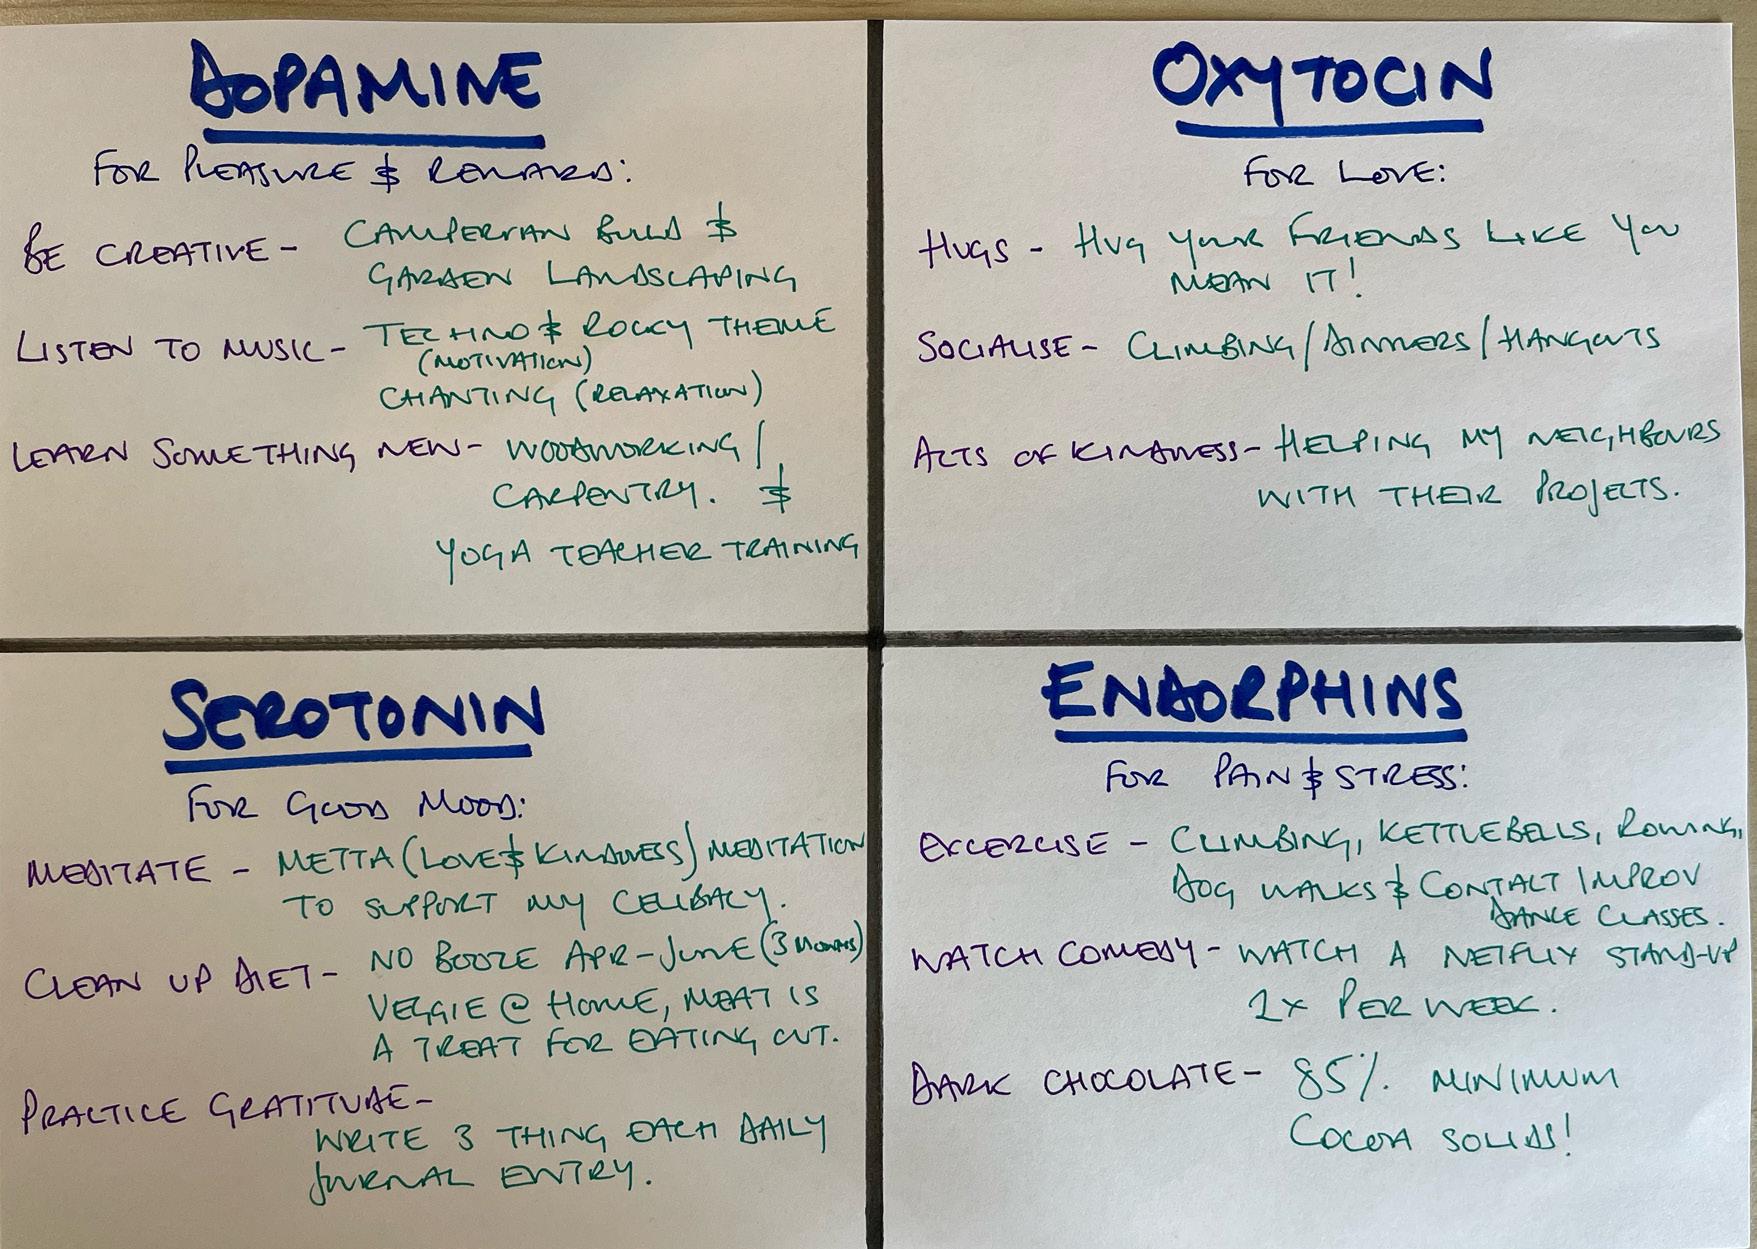 DOPAMINE
FOR PLEASURE & REWARD:
BE CREATIVE - CAMPERVAN BUILD &
GARDEN LANDSCAPING
LISTEN TO MUSIC - TECHNO & ROCKY THEME
(MOTIVATION)
CHANTING (RELAXATION)
LEARN SOMETHING NEW - WOODWORKING /
CARPENTRY. &
YOGA TEACHER TRAINING
OXYTOCIN
FOR LOVE:
HUGS - HUG YOUR FRIENDS LIKE YOU
MEAN IT!
SOCIALISE - CLIMBING/DINNERS/HANGOUTS
ACTS OF KINDNESS - HELPING MY NEIGHBOURS
WITH THEIR PROJECTS.
SEROTONIN
FOR GOOD MOOD:
MEDITATE - METTA (LOVE & KINDNESS) MEDITATION
TO SUPPORT MY CELIBACY.
CLEAN UP DIET - NO BOOZE APR-JUNE (3 MONTHS)
VEGGIE @ HOME, MEAT IS
A TREAT FOR EATING OUT.
PRACTICE GRATITUDE -
WRITE 3 THING EACH DAILY
JOURNAL ENTRY.
ENDORPHINS
FOR PAIN & STRESS:
EXCERCISE - CLIMBING, KETTLEBELLS, ROWING,
DOG WALKS & CONTACT IMPROV
DANCE CLASSES.
WATCH COMEDY - WATCH A NETFLIX STAND-UP
1x PER WEEK.
DARK CHOCOLATE - 85% MINIMUM
COCOA SOLIDS!